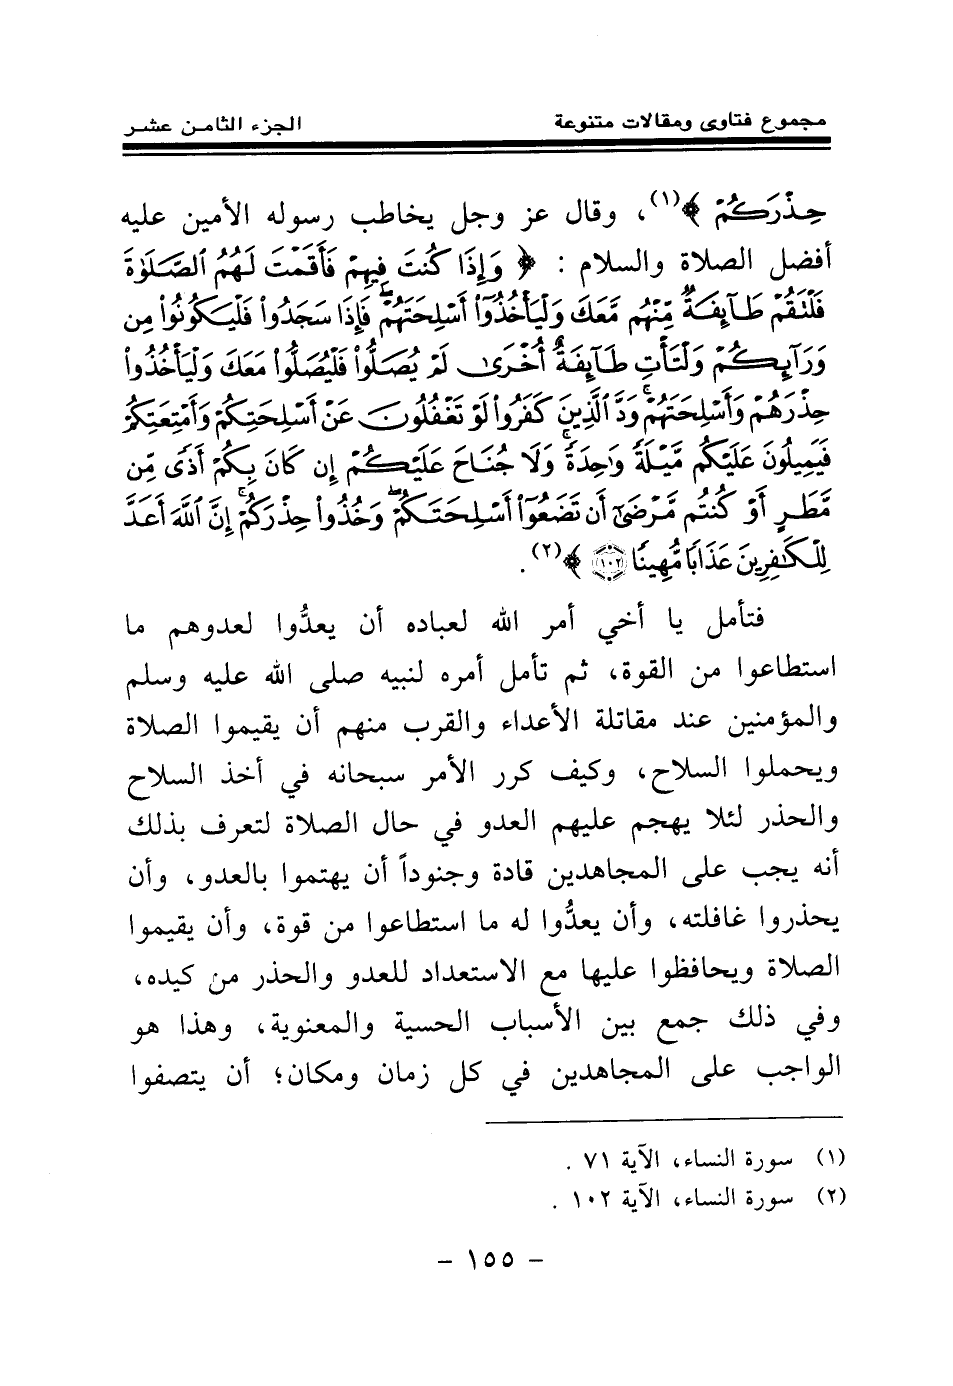 مجموع فتاوى ومقالات متنوعة
الجزء الثامن عشر
حِذْرَكُمْ ﴾(١)، وقال عز وجل يخاطب رسوله الأمين عليه
أفضل الصلاة والسلام : ﴿ وَإِذَا كُنتَ فِيهِمْ فَأَقَمْتَ لَهُمُ ٱلصَّلَوٰةَ
فَلْتَقُمْ طَآئِفَةٌ مِّنْهُم مَّعَكَ وَلْيَأْخُذُوٓا۟ أَسْلِحَتَهُمْ ۖ فَإِذَا سَجَدُوا۟ فَلْيَكُونُوا۟ مِن
وَرَآئِكُمْ وَلْتَأْتِ طَآئِفَةٌ أُخْرَىٰ لَمْ يُصَلُّوا۟ فَلْيُصَلُّوا۟ مَعَكَ وَلْيَأْخُذُوا۟
حِذْرَهُمْ وَأَسْلِحَتَهُمْ ۗ وَدَّ ٱلَّذِينَ كَفَرُوا۟ لَوْ تَغْفُلُونَ عَنْ أَسْلِحَتِكُمْ وَأَمْتِعَتِكُمْ
فَيَمِيلُونَ عَلَيْكُم مَّيْلَةً وَٰحِدَةً ۚ وَلَا جُنَاحَ عَلَيْكُمْ إِن كَانَ بِكُمْ أَذًى مِّن
مَّطَرٍ أَوْ كُنتُم مَّرْضَىٰٓ أَن تَضَعُوٓا۟ أَسْلِحَتَكُمْ ۖ وَخُذُوا۟ حِذْرَكُمْ ۗ إِنَّ ٱللَّهَ أَعَدَّ
لِلْكَٰفِرِينَ عَذَابًا مُّهِينًا ١٠٢ ﴾(٢) .
فتأمل يا أخي أمر الله لعباده أن يعدُّوا لعدوهم ما
استطاعوا من القوة، ثم تأمل أمره لنبيه صلى الله عليه وسلم
والمؤمنين عند مقاتلة الأعداء والقرب منهم أن يقيموا الصلاة
ويحملوا السلاح، وكيف كرر الأمر سبحانه في أخذ السلاح
والحذر لئلا يهجم عليهم العدو في حال الصلاة لتعرف بذلك
أنه يجب على المجاهدين قادة وجنوداً أن يهتموا بالعدو، وأن
يحذروا غافلته، وأن يعدُّوا له ما استطاعوا من قوة، وأن يقيموا
الصلاة ويحافظوا عليها مع الاستعداد للعدو والحذر من كيده،
وفي ذلك جمع بين الأسباب الحسية والمعنوية، وهذا هو
الواجب على المجاهدين في كل زمان ومكان؛ أن يتصفوا
(١) سورة النساء، الآية ٧١ .
(٢) سورة النساء، الآية ١٠٢ .
- ١٥٥ -